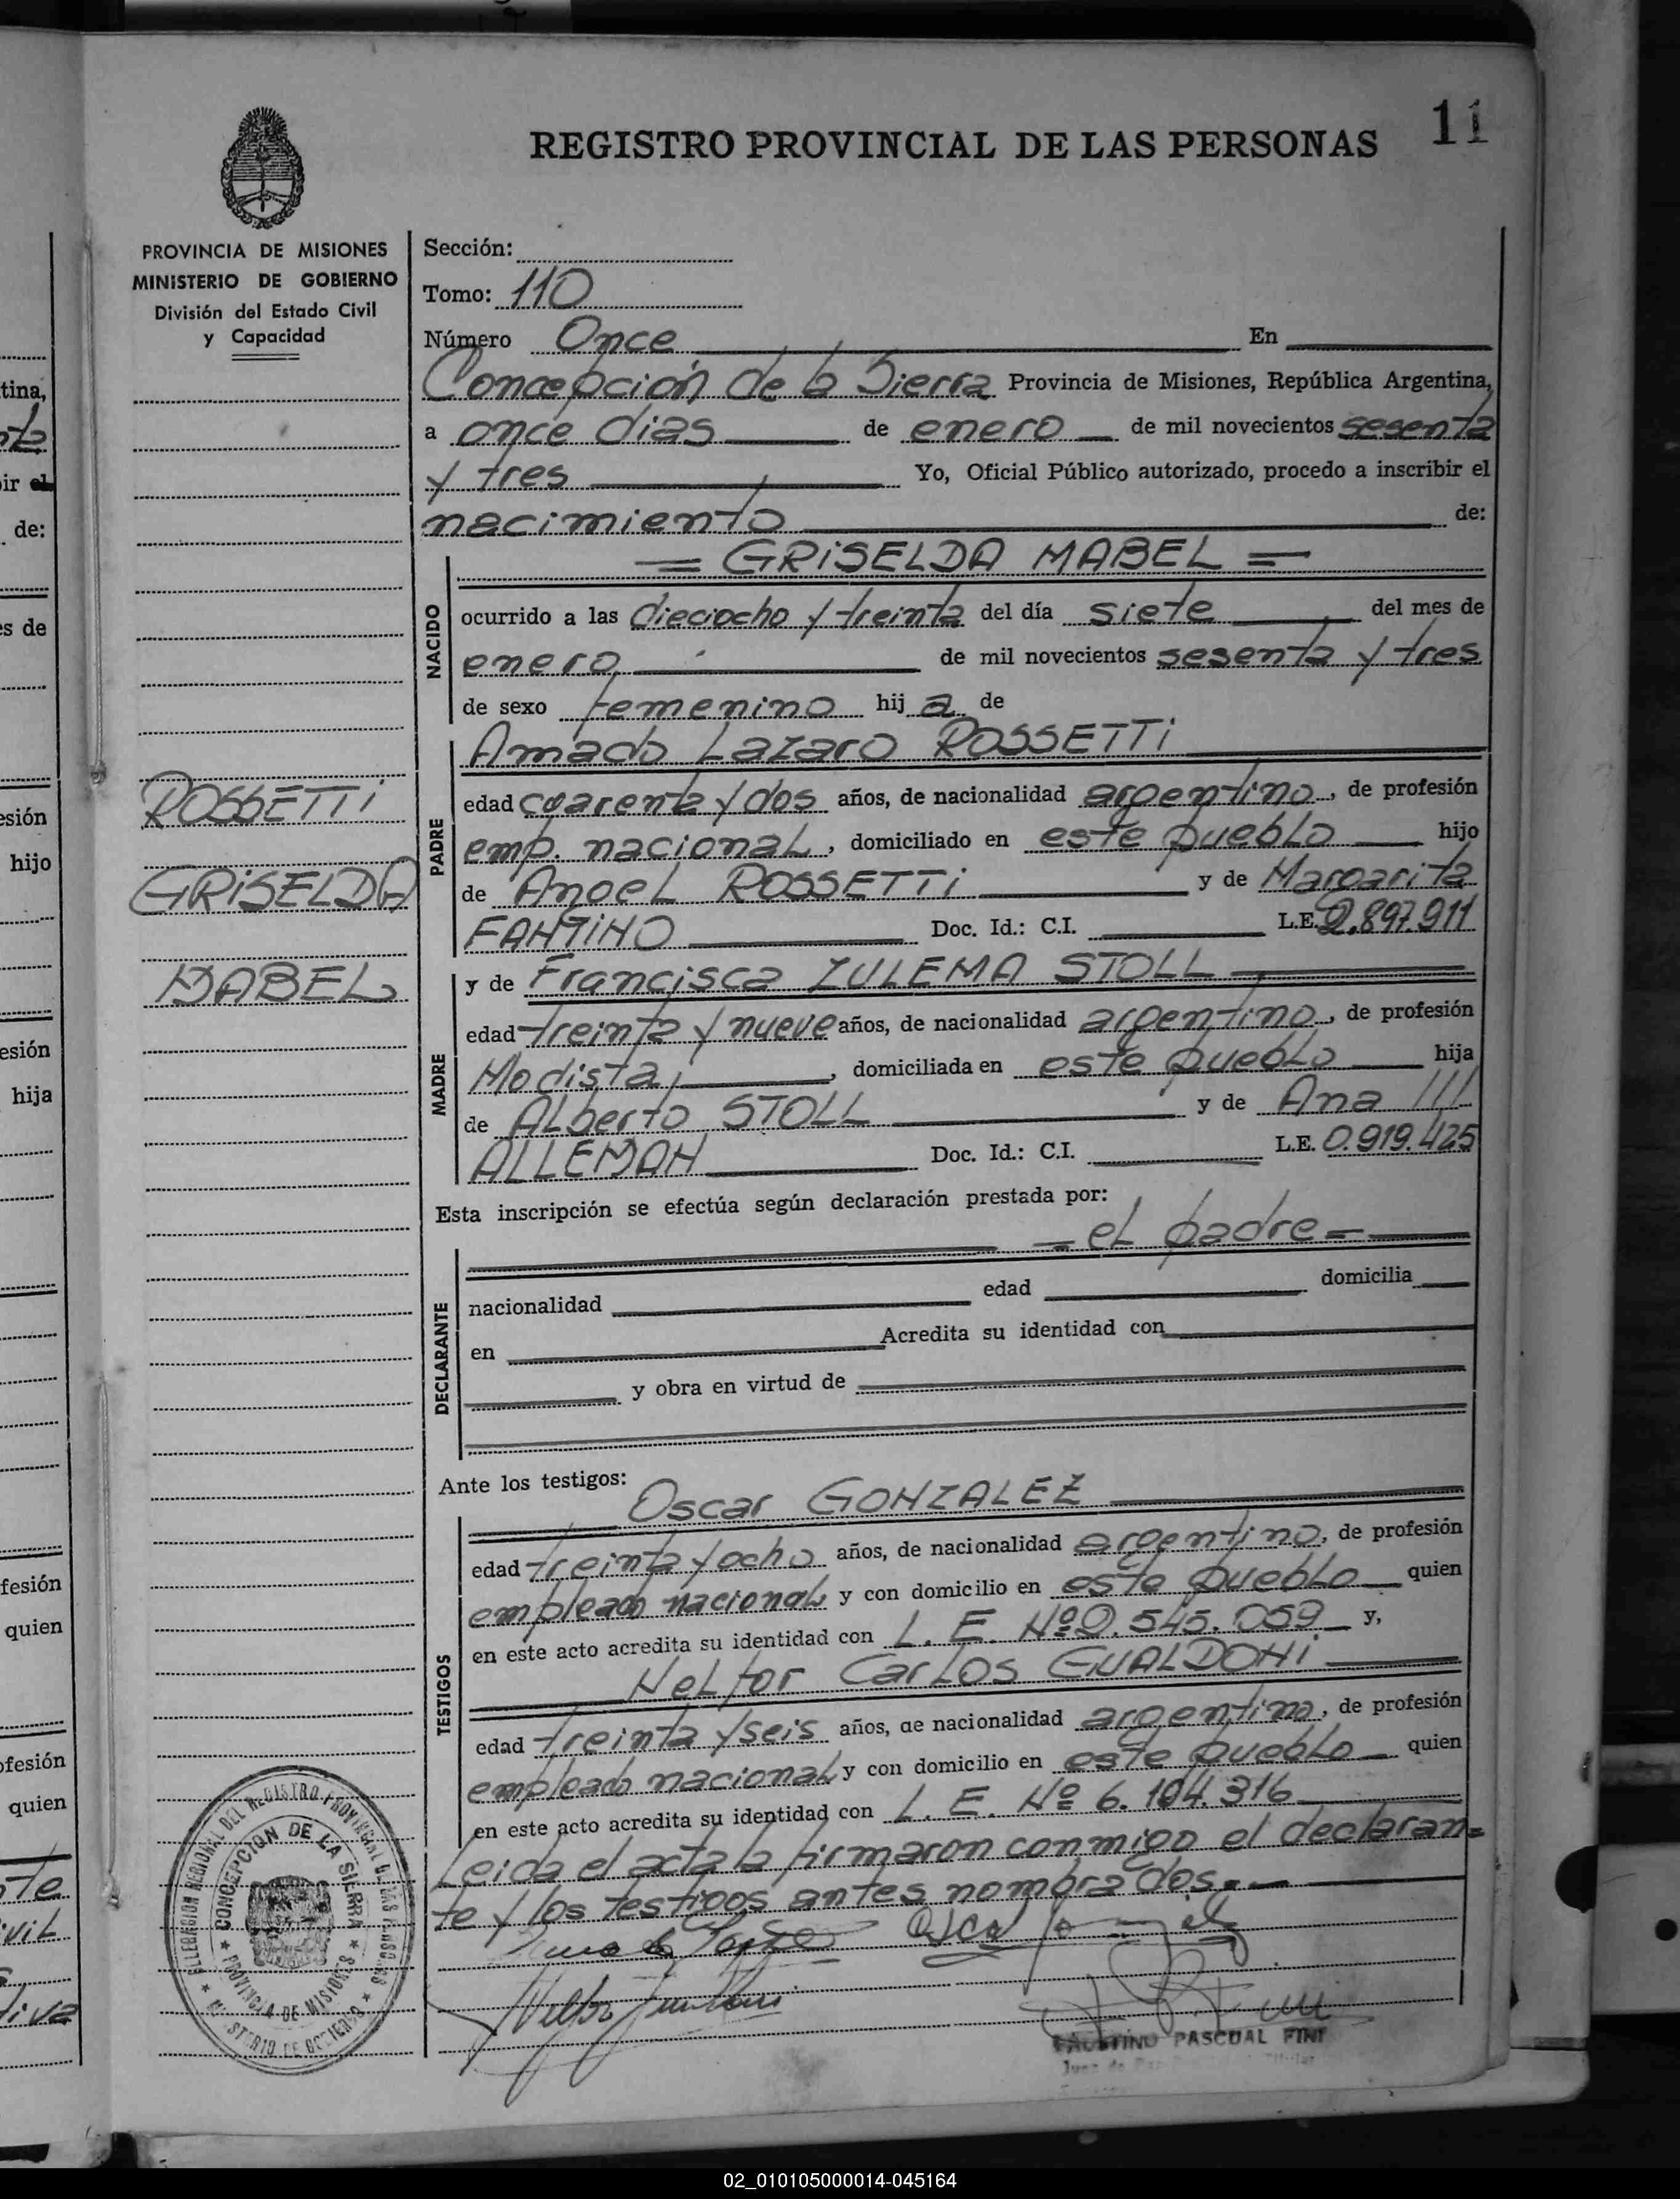 11
REGISTRO PROVINCIAL DE LAS PERSONAS
PROVINCIA DE MISIONES
MINISTERIO DE GOBIERNO
División del Estado Civil
y Capacidad
ROSSETTi
GRiSELDA
MABEL
Sección:
Tomo: 110
Número Once En
Concepción de la Sierra Provincia de Misiones, República Argentina,
a once días de enero de mil novecientos sesenta
y tres Yo, Oficial Público autorizado, procedo a inscribir el
nacimiento de:
= GRiSELDA MABEL =
NACIDO
ocurrido a las dieciocho y treinta del día siete del mes de
enero de mil novecientos sesenta y tres
de sexo femenino hij a de
PADRE
Amado Lazaro ROSSETTi
edad cuarenta y dos años, de nacionalidad argentino, de profesión
emp. nacional, domiciliado en este pueblo hijo
de Angel ROSSETTi y de Margarita
FANTiNO Doc. Id.: C.I. L.E. 2.897.911
MADRE
y de Francisca ZULEMA STOLL
edad treinta y nueve años, de nacionalidad argentino, de profesión
Modista, domiciliada en este pueblo hija
de Alberto STOLL y de Ana ///
ALLEMAN Doc. Id.: C.I. L.E. 0.919.425
Esta inscripción se efectúa según declaración prestada por:
= el padre =
DECLARANTE
nacionalidad edad domicilia
en Acredita su identidad con
y obra en virtud de
Ante los testigos:
TESTIGOS
Oscar GONZALEZ
edad treinta y ocho años, de nacionalidad argentino, de profesión
empleado nacional y con domicilio en este pueblo quien
en este acto acredita su identidad con L. E. Nº 2.545.059 y,
Heltor Carlos GUALDONi
edad treinta y seis años, de nacionalidad argentino, de profesión
empleado nacional y con domicilio en este pueblo quien
en este acto acredita su identidad con L. E. Nº 6.104.316
Leida el acta la firmaron conmigo el declaran=
te y los testigos antes nombrados.
FAUSTINO PASCUAL FINI
DELEGACION REGIONAL DEL REGISTRO PROVINCIAL DE LAS PERSONAS
CONCEPCION DE LA SIERRA
PROVINCIA DE MISIONES
MINISTERIO DE GOBIERNO
02_010105000014-045164